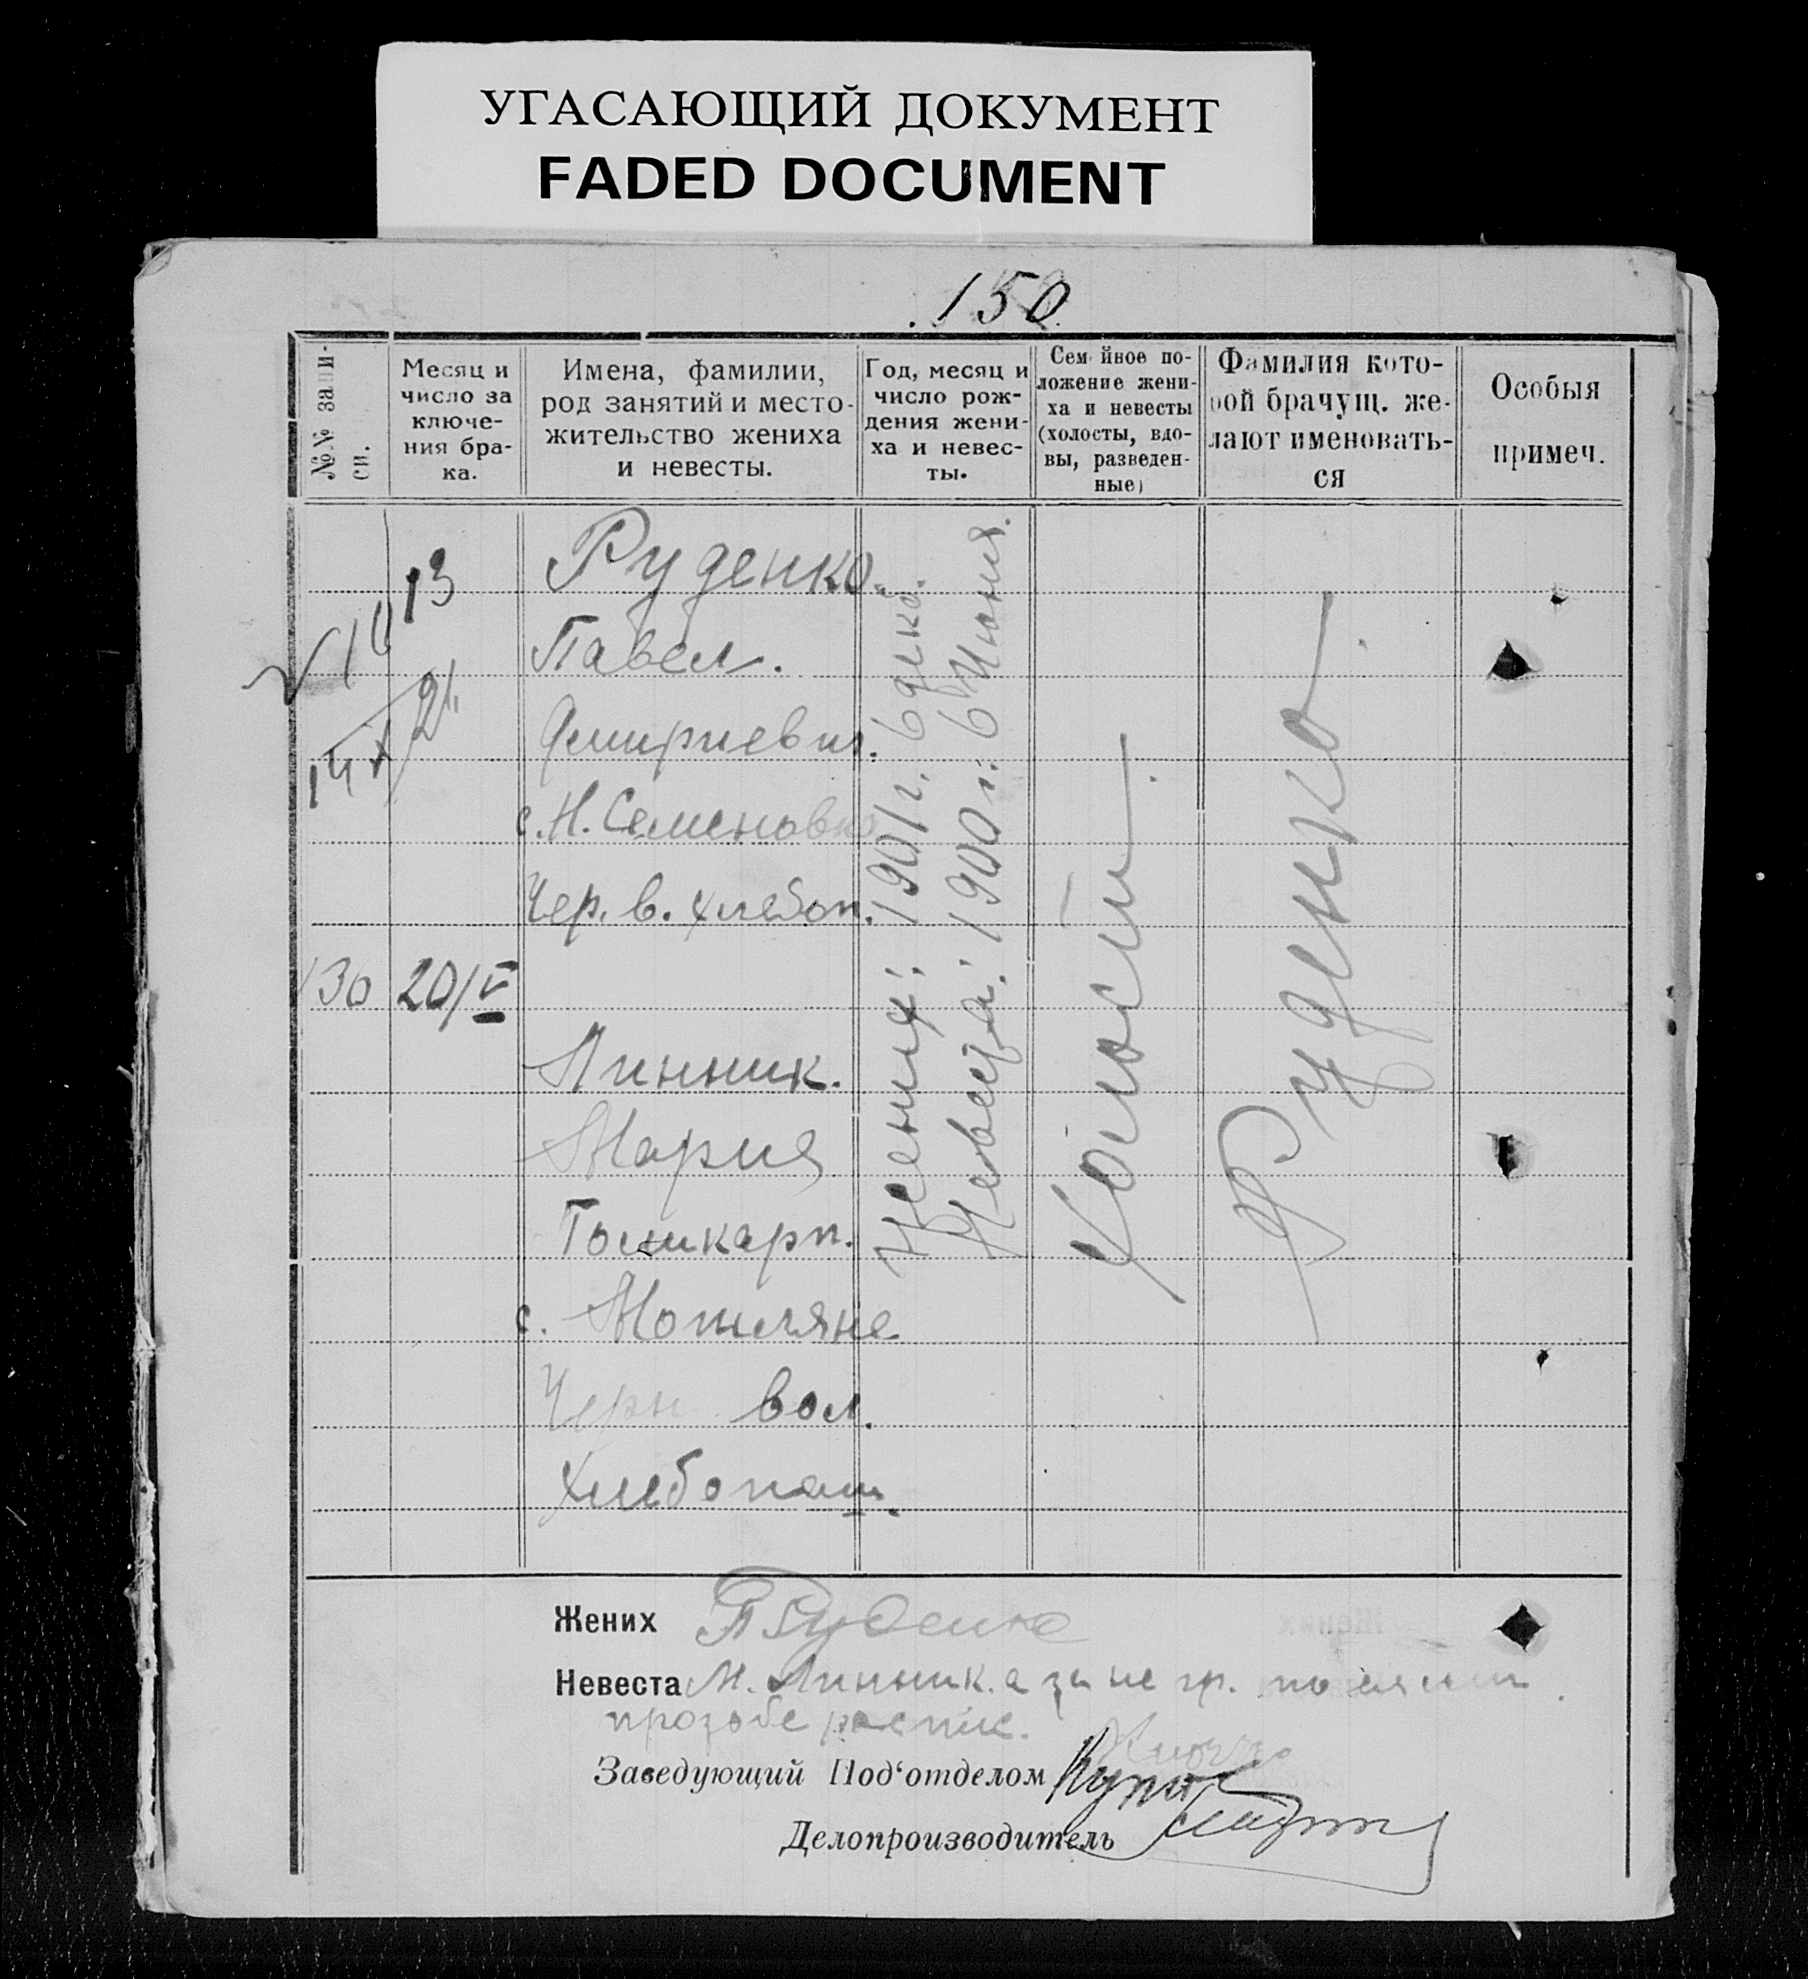 УГАСАЮЩИЙ ДОКУМЕНТ
FADED DOCUMENT
150.
№№ запи-
си.
Месяц и
число за
ключе-
ния бра-
ка.
Имена, фамилии,
род занятий и место-
жительство жениха
и невесты.
Год, месяц и
число рож-
дения жени-
ха и невес-
ты.
Семейное по-
ложение жени-
ха и невесты
(холосты, вдо-
вы, разведен-
ные)
Фамилия кото-
рой брачущ. же-
лают именовать-
ся
Особыя
примеч.
13
Руденко.
Павел.
Дмитриевич.
с. Н. Семеновка
Чер. в. хлебоп.
130 20/V
Линник.
Мария
Поликарп.
с.
Черн вол.
хлебопаш.
Жених: 1901 г. 6 декб.
Невеста: 1900 г. 6 Июня.
Холосты.
Руденко.
Жених П Руденко
Невеста М. Линник. а за не гр. по ея
прозьбе распис.
Заведующий Под‘отделом
Делопроизводитель